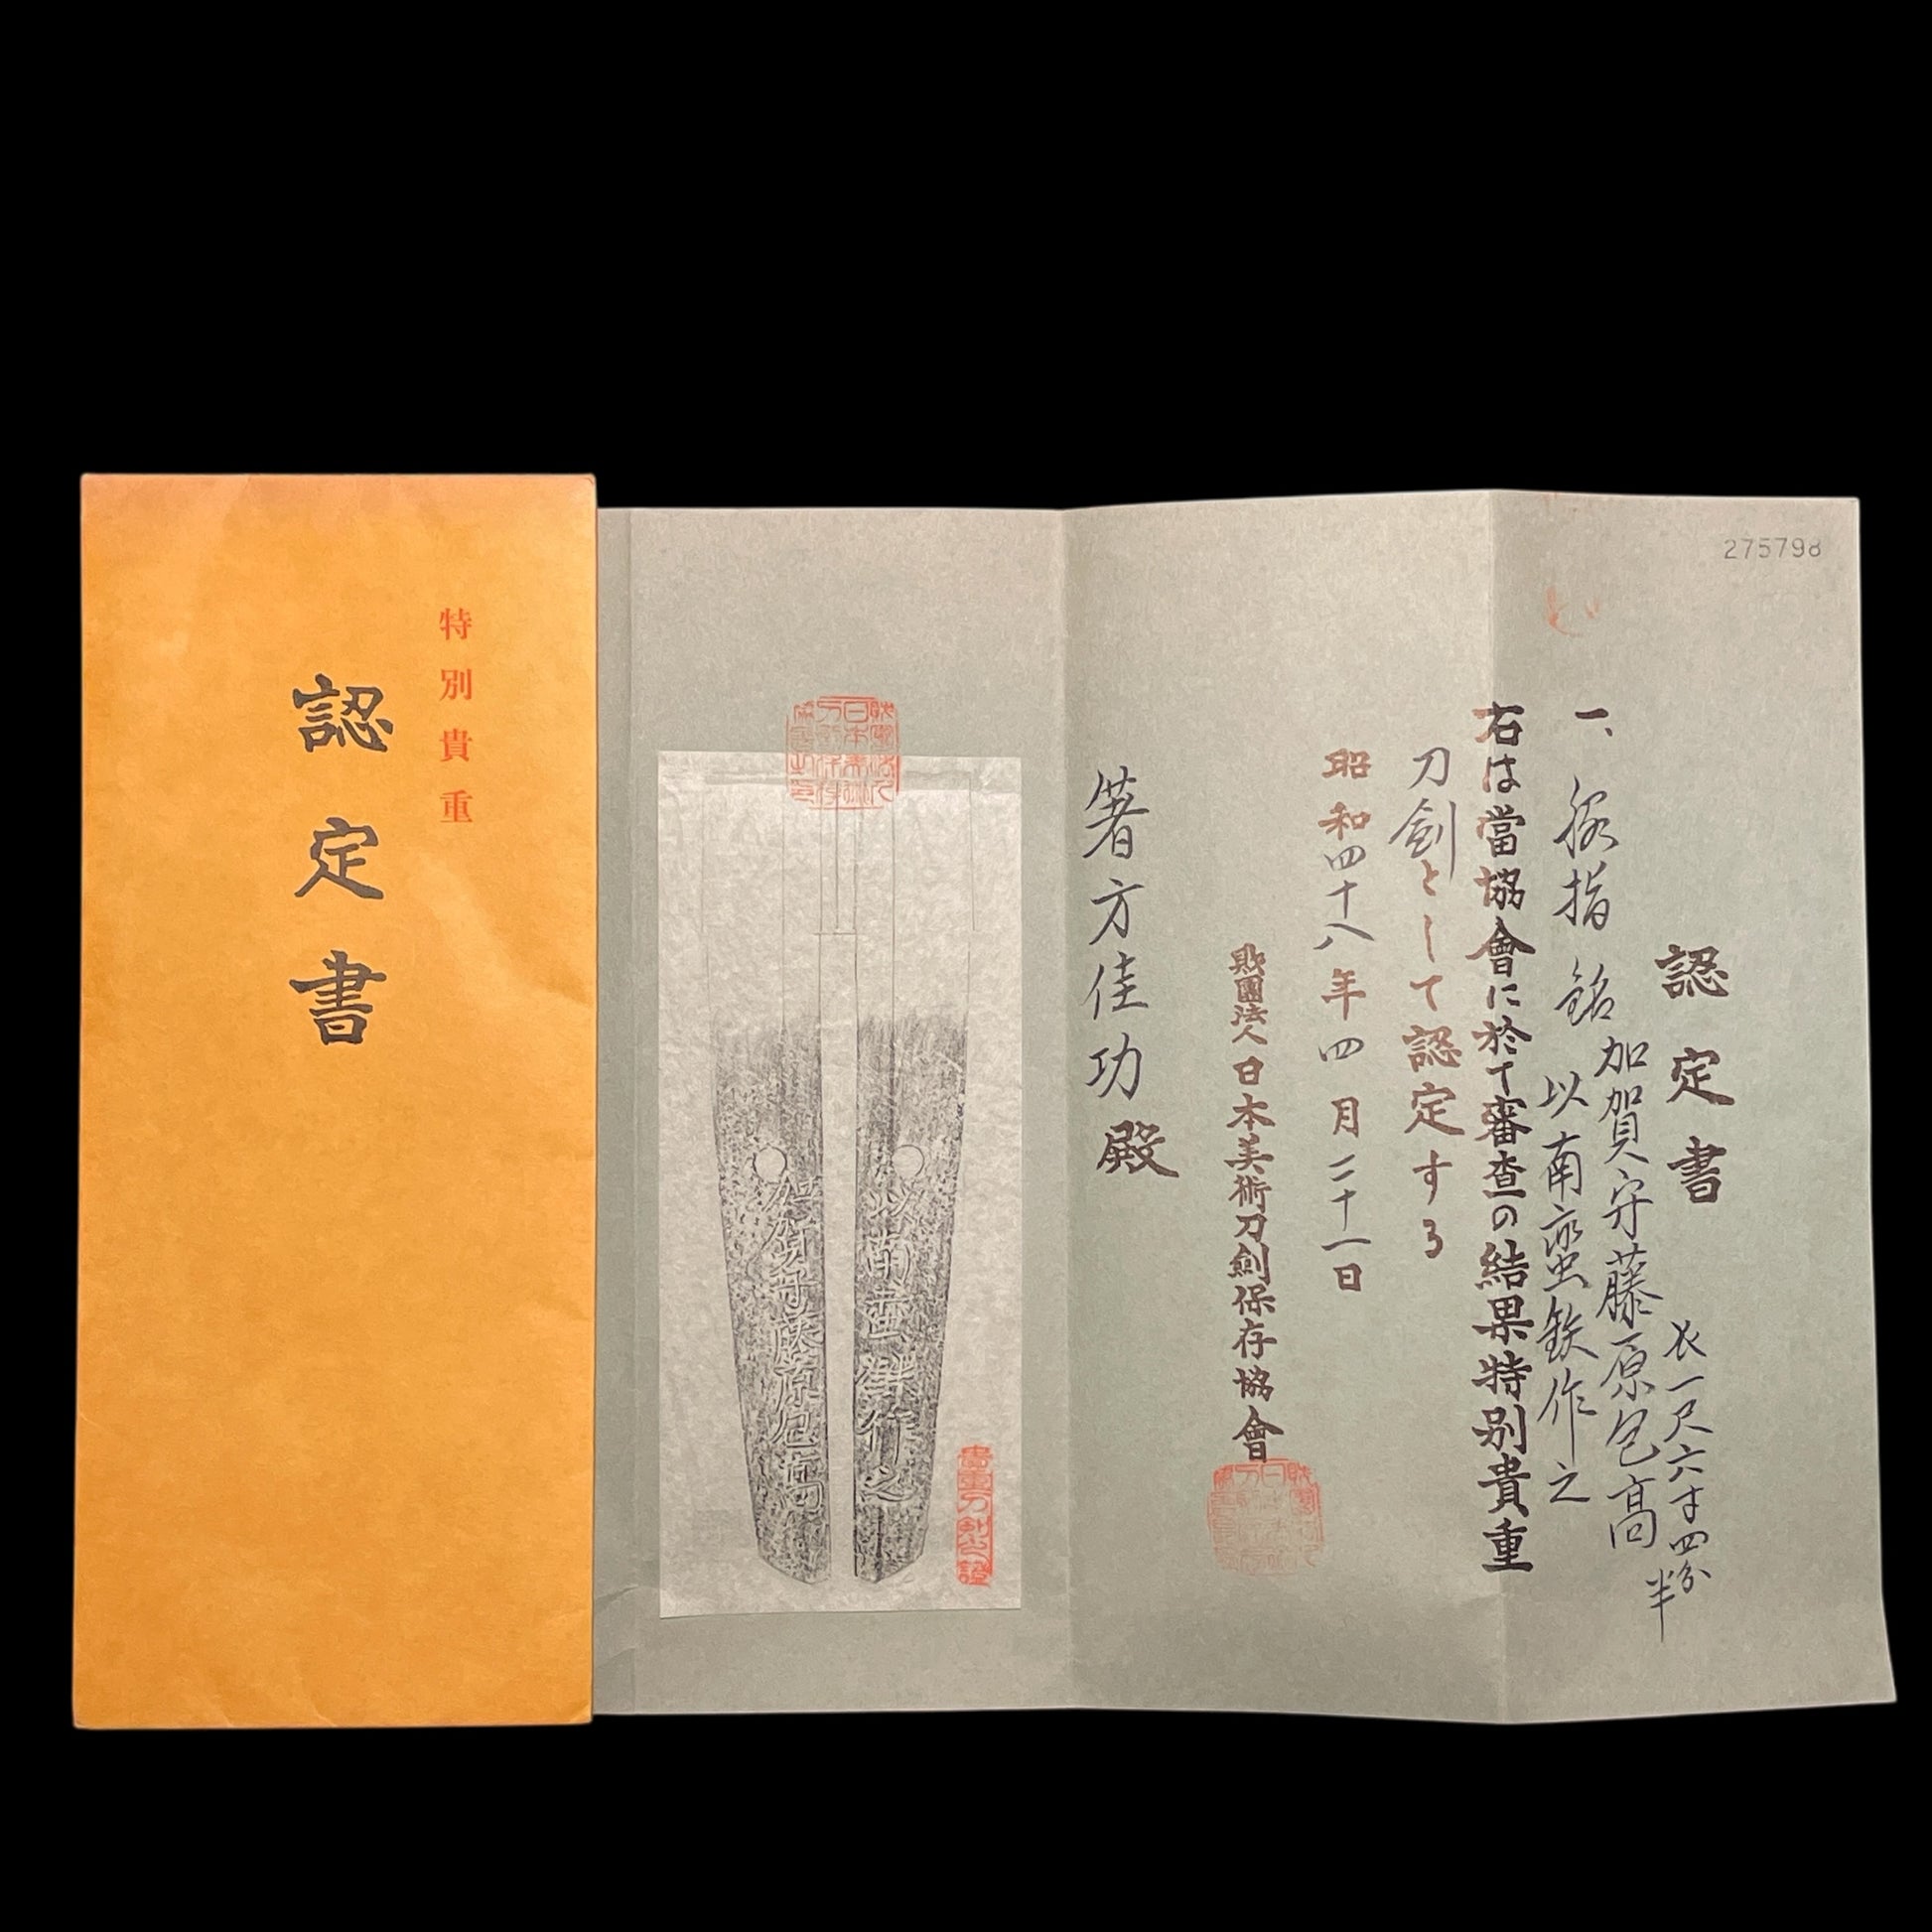 特別貴重
認定書
275798
認定書
一、脇指 銘 加賀守藤原包高
以南蛮鉄作之
長一尺六寸四分半
右は當協會に於て審査の結果特別貴重
刀剣として認定する
昭和四十八年四月二十一日
財團法人日本美術刀剣保存協會
箸方佳功殿
加賀守藤原包高
以南蛮鉄作之
貴重刀剣之證